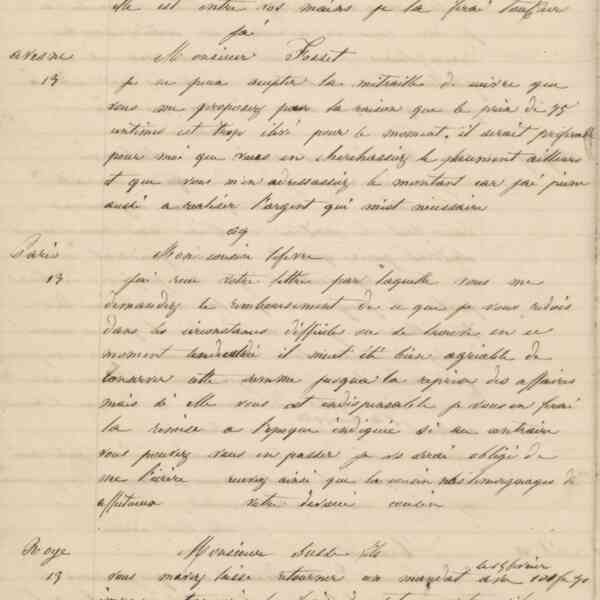 elle est entre vos mains je la ferai toucher
Avesne Monsieur Fosset
13 je ne peux accepter la mitraille de cuivre que
vous me proposez par la raison que le prix de 75
centimes est trop élevé pour le moment, il serait préférable
pour moi que vous en cherchassiez le placement ailleurs
et que vous m'en adressassiez le montant car j'ai peine
aussi a realiser l'argent qui m'est nécessaire
Paris Mon cousin lefevre
13 j'ai recu votre lettre par laquelle vous me
demandez le remboursement de ce que je vous redois
dans les circonstances difficiles ou se trouve en ce
moment l'industrie il m'eut été bien agréable de
conserver cette somme jusqu'a la reprise des affaires
mais si elle vous est indispensable je vous en ferai
la remise a l'epoque indiquée si au contraire
vous pouvez vous en passer je vs serai obligé de
me l'écrire recevez ainsi que la cousine nos temoignages
affectueux votre cousin
Roye Monsieur
13 vous m'avez laissé retourner un mandat